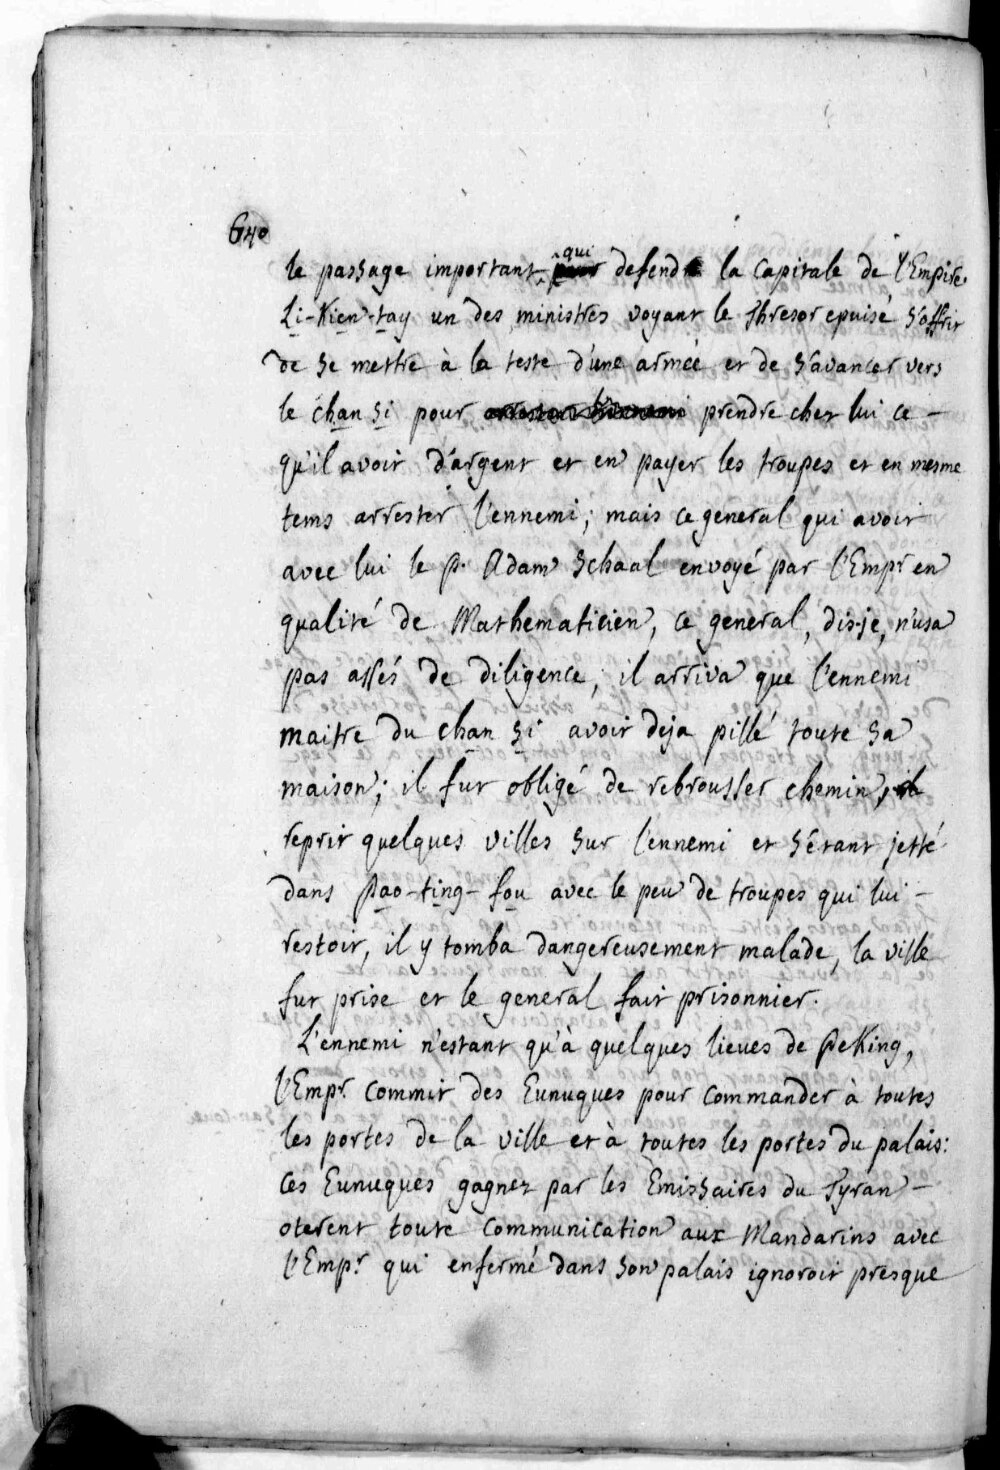 640
le passage important qui defend la capitale de l'Empire.
Li-Kien-tay un des ministres voyant le Thresor epuisé s'offrir
de se mettre à la teste d'une armée et de s'avancer vers
le chan si pour prendre chez lui ce -
qu'il avoit d'argent et en payer les troupes et en mesme
tems arrester l'ennemi; mais ce general qui avoit
avec lui le P. Adam Schaal envoyé par l'Empr en
qualité de Mathematicien, ce general, dis-je, n'usa
pas assés de diligence, il arriva que l'ennemi
maitre du chan si avoit deja pillé toute sa
maison; il fut obligé de rebrousser chemin, il
reprit quelques villes sur l'ennemi et s'étant jetté
dans Pao-ting-fou avec le peu de troupes qui lui -
restoit, il y tomba dangereusement malade, la ville
fut prise et le general fait prisonnier.
L'ennemi n'estant qu'à quelques lieues de PeKing,
l'Empr. commit des Eunuques pour commander à toutes
les portes de la ville et à toutes les portes du palais:
ces Eunuques gagnez par les Emissaires du Tyran -
oterent toute communication aux Mandarins avec
l'Empr. qui enfermé dans son palais ignoroit presque